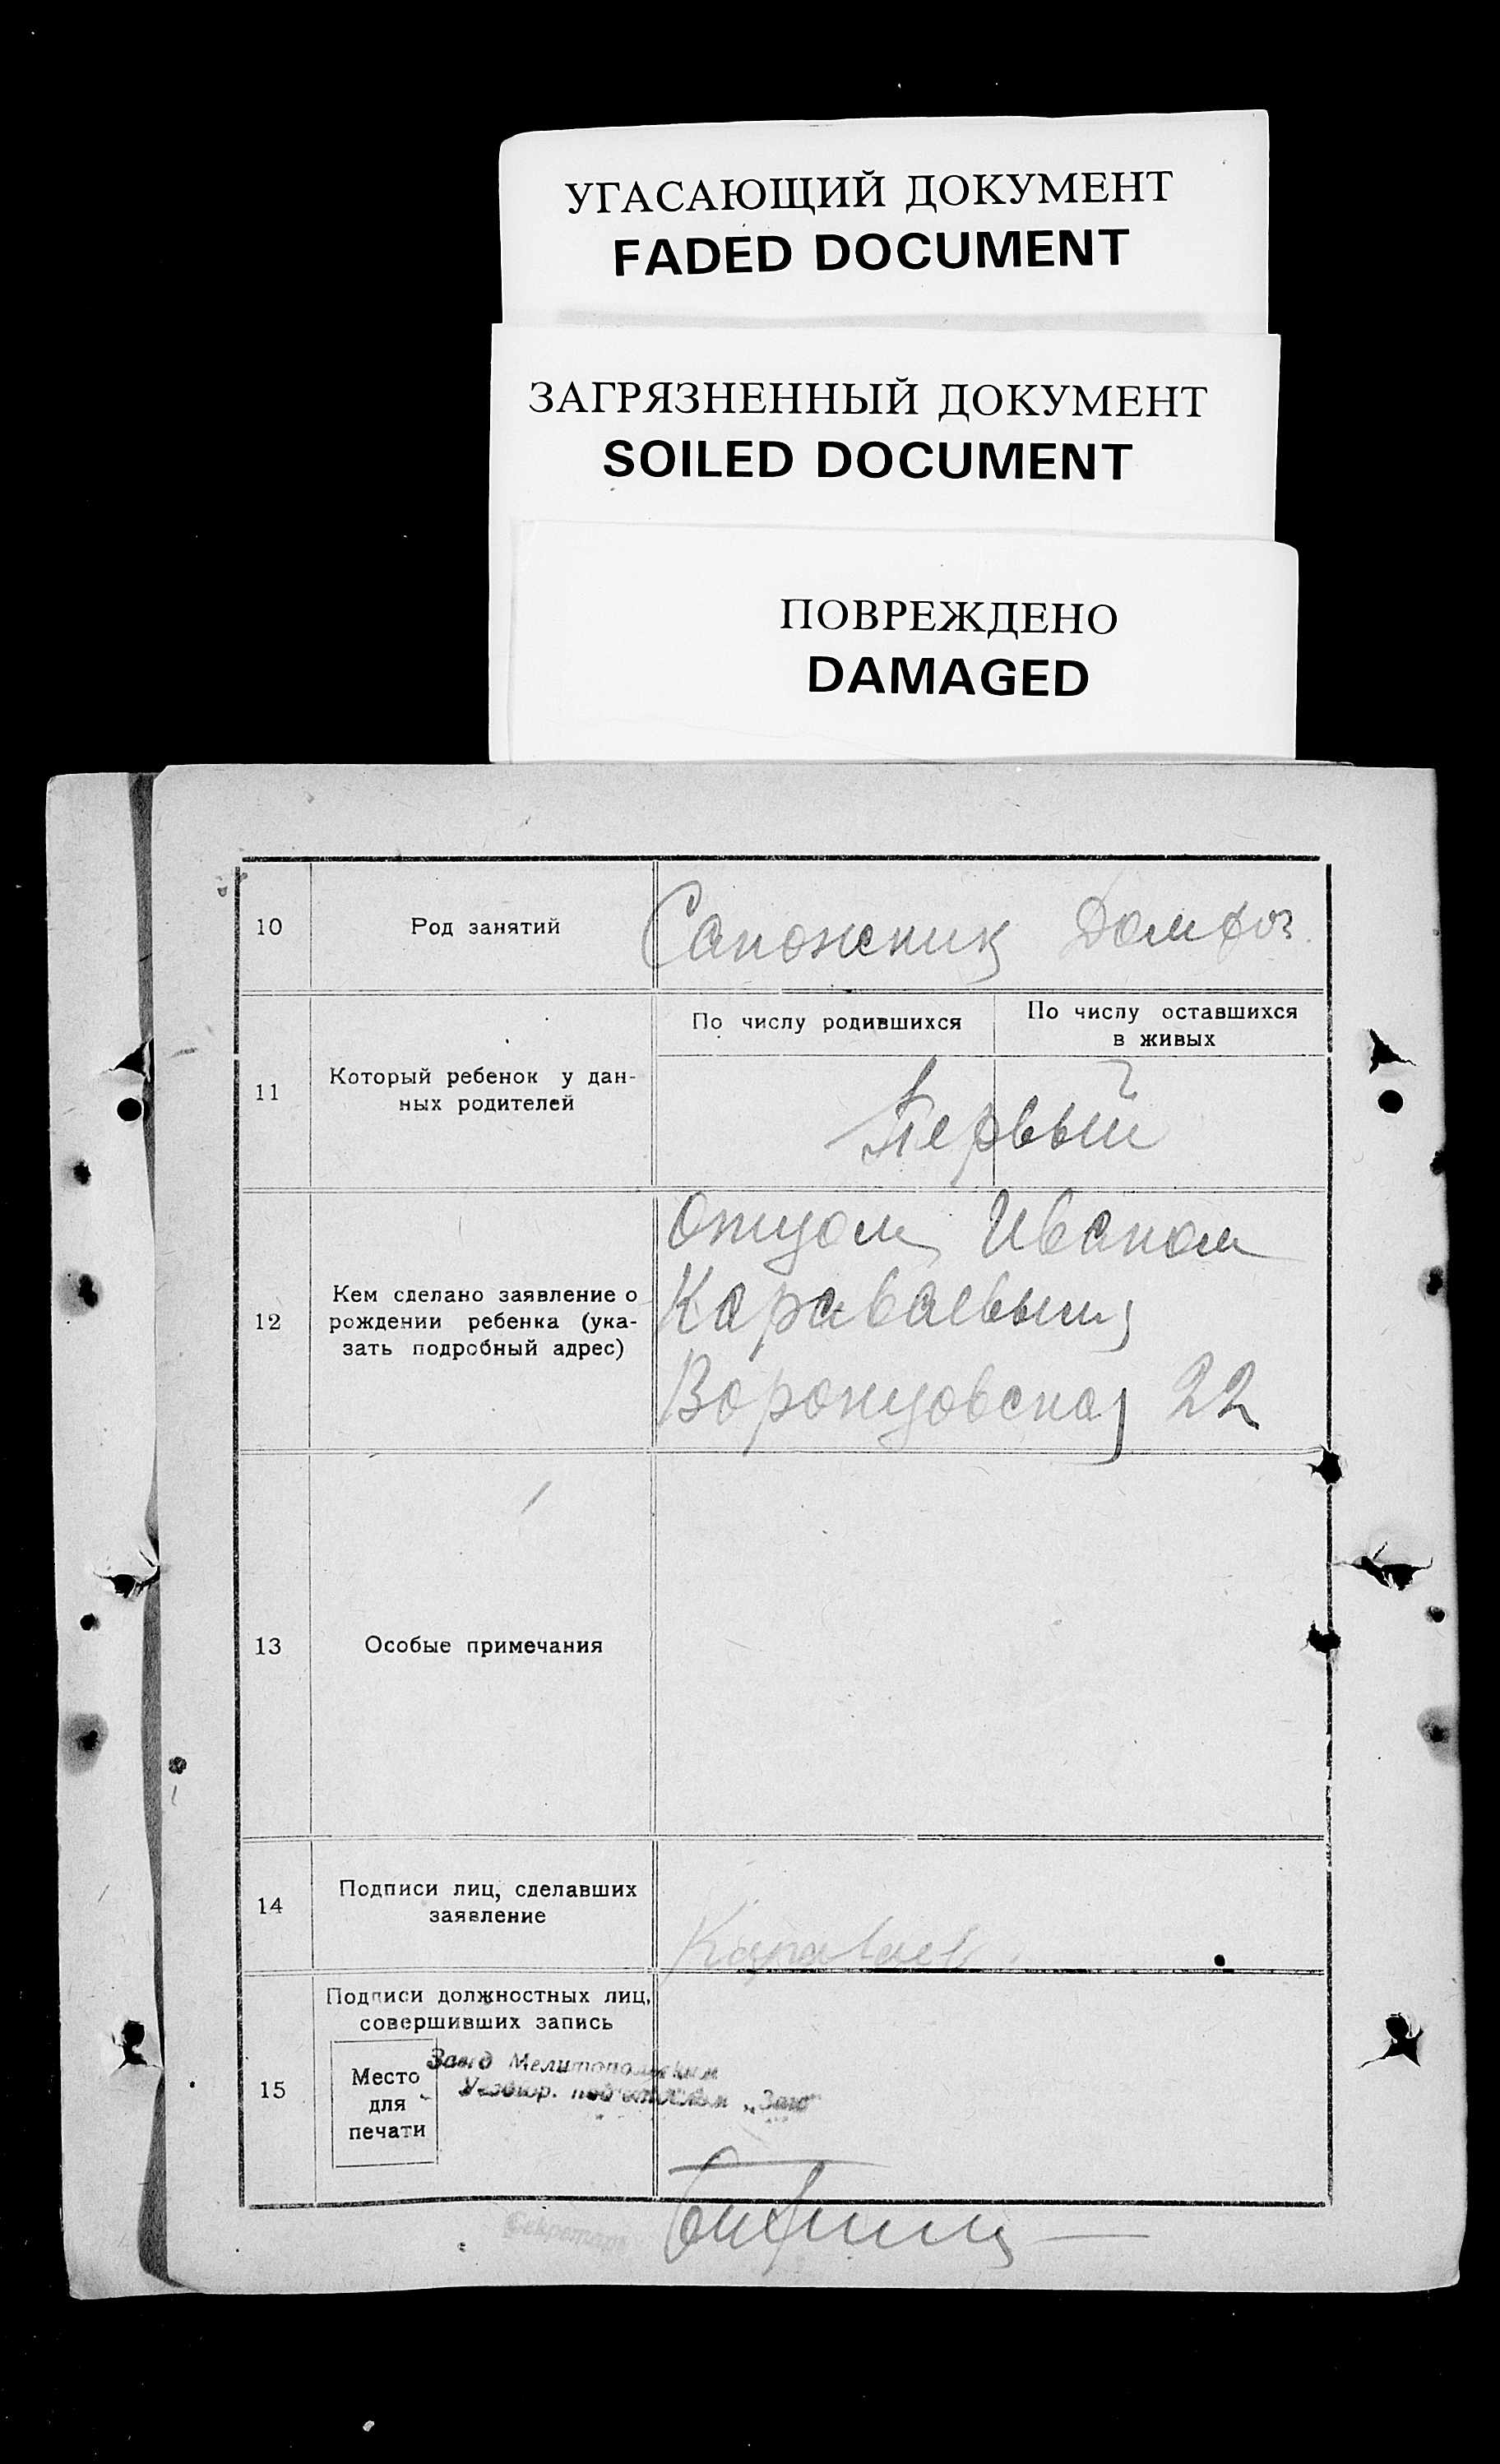 УГАСАЮЩИЙ ДОКУМЕНТ
FADED DOCUMENT
ЗАГРЯЗНЕННЫЙ ДОКУМЕНТ
SOILED DOCUMENT
ПОВРЕЖДЕНО
DAMAGED
10 Род занятий Сапожник Домхоз.
11 Который ребенок у дан-
ных родителей
По числу родившихся
По числу оставшихся
в живых
Первый
12 Кем сделано заявление о
рождении ребенка (ука-
зать подробный адрес)
Отцом Иваном
Караваевым
Воронцовская 22
13 Особые примечания
14 Подписи лиц, сделавших
заявление
Караваев
15 Подписи должностных лиц,
совершивших запись
Место
для
печати
Завед Мелитопольским
подотделом „Загс
Секретарь